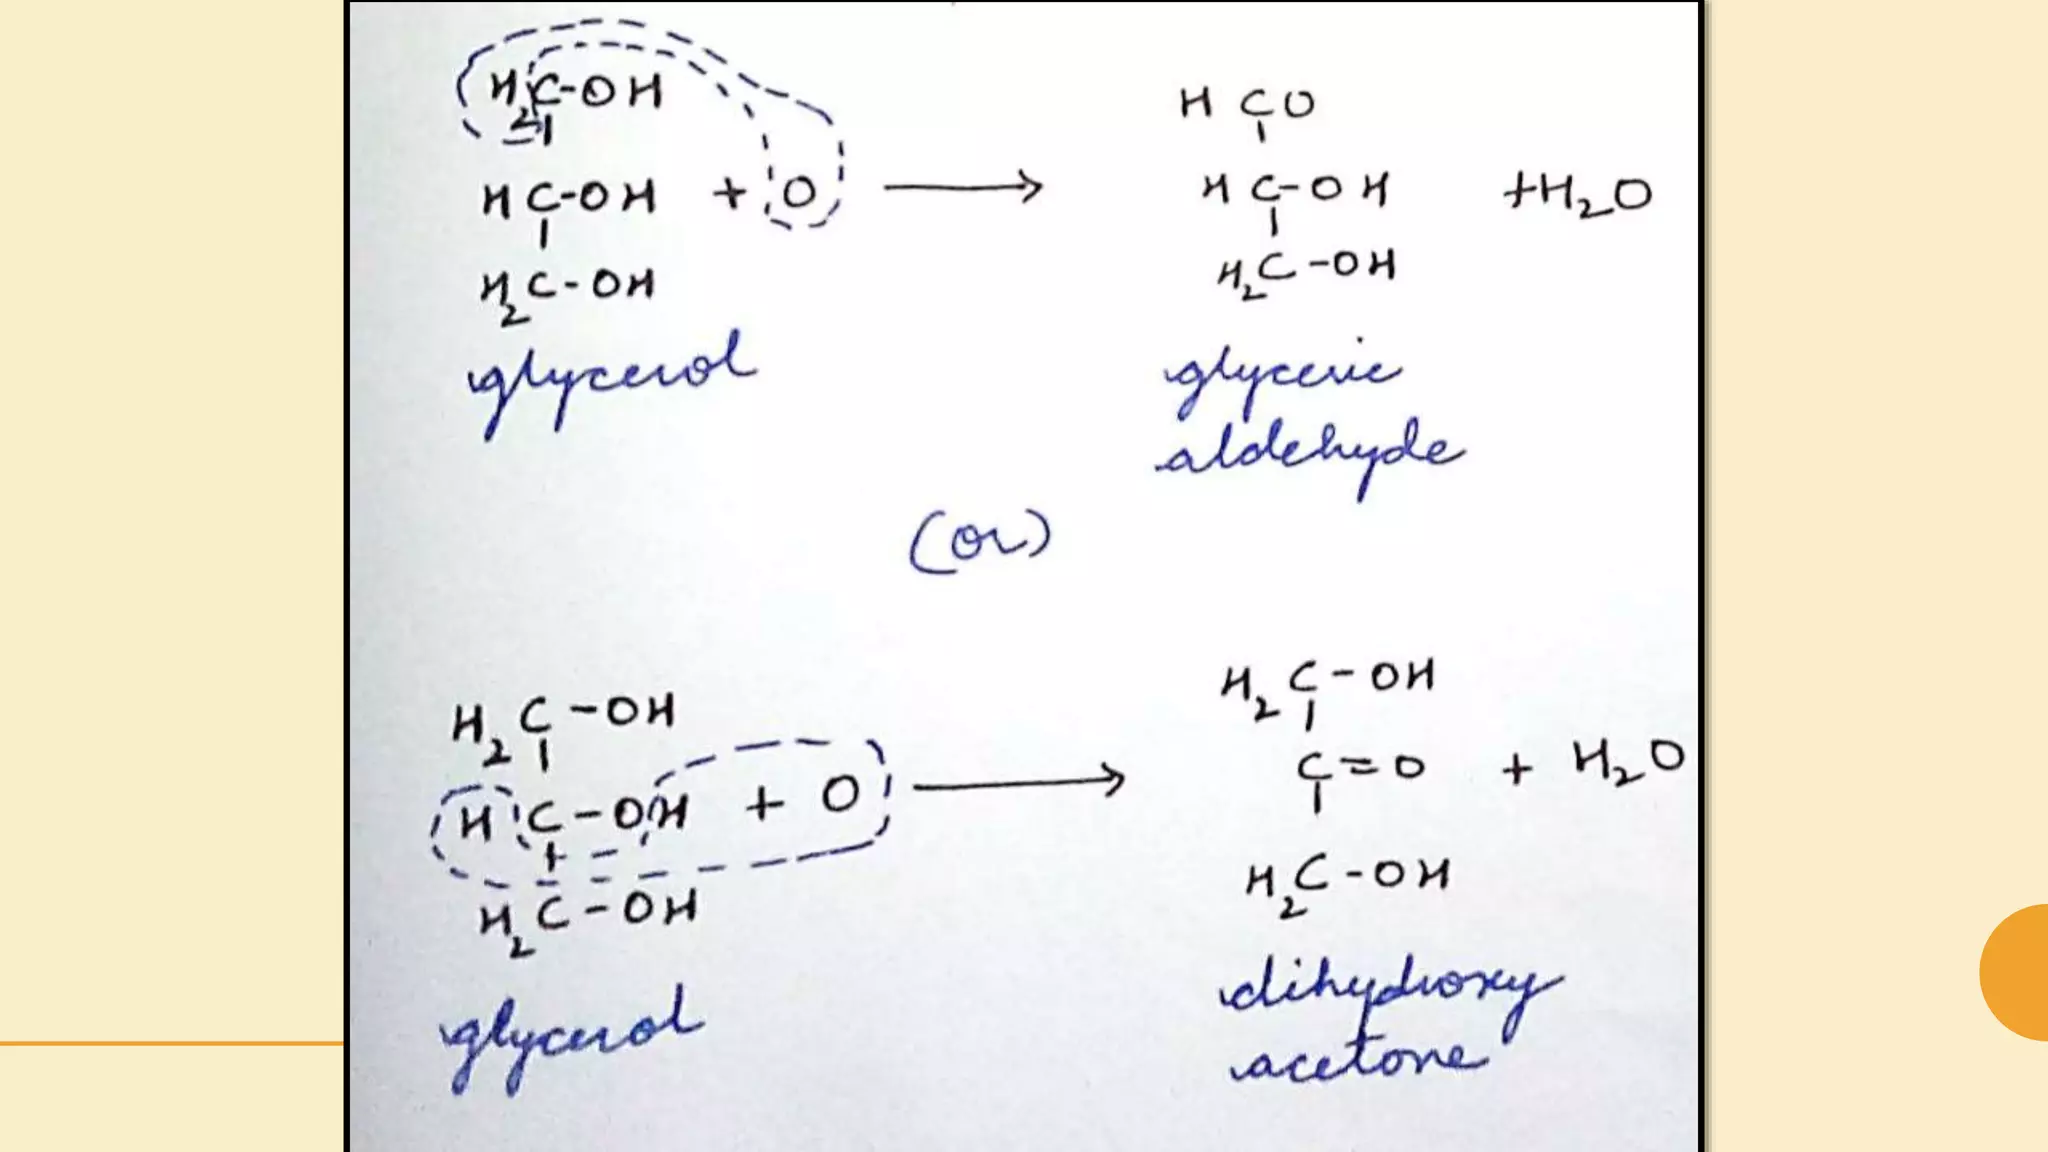 H₂C-OH
HC-OH + O ⟶
H₂C-OH
glycerol
HCO
HC-OH +H₂O
H₂C-OH
glyceric
aldehyde
(or)
H₂C-OH
HC-OH + O ⟶
H₂C-OH
glycerol
H₂C-OH
C=O + H₂O
H₂C-OH
dihydroxy
acetone